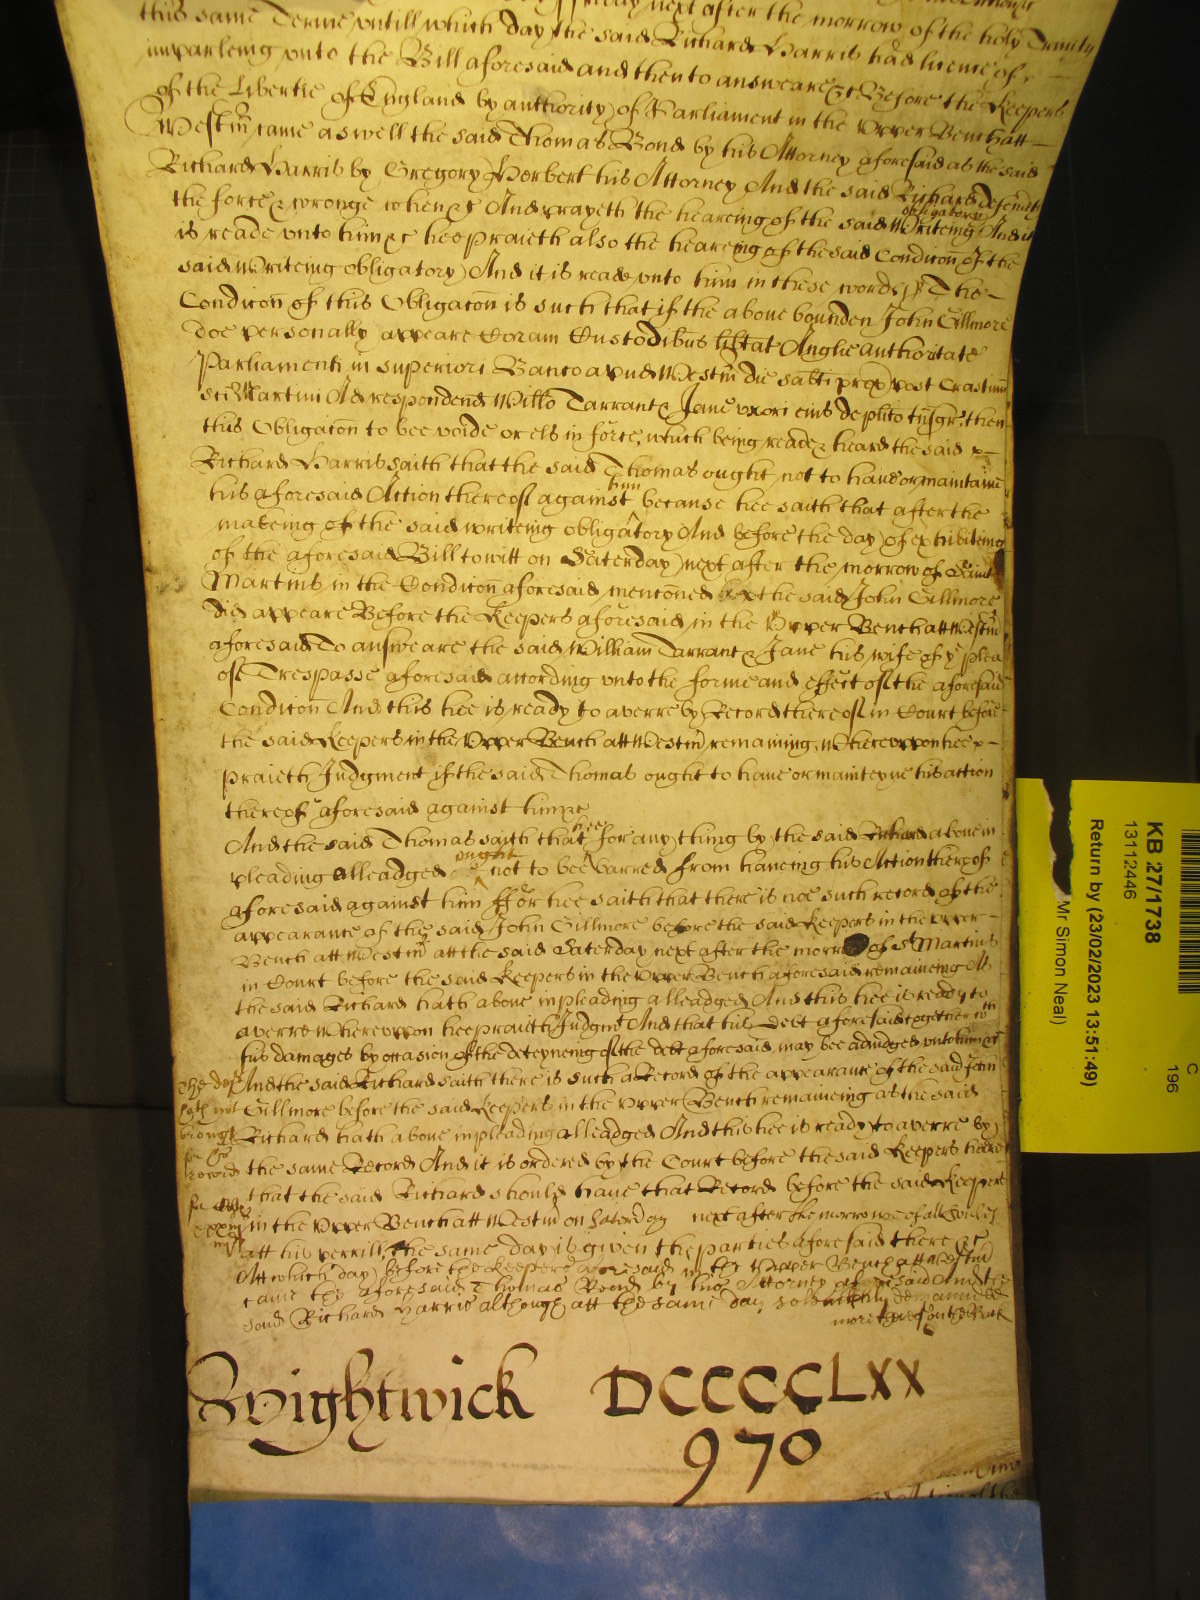 Friday next after the morrow of the holy Trinity
this same Terme untill which day the said Richard Harris had licence of
imparleing unto the Bill aforesaid and then to answeare &c Before the Keepers
of the Libertie of England by authority of Parliament in the Upper Bench att
Westm̃ came aswell the said Thomas Bond by his Attorney aforesaid as the said
Richard Harris by Gregory Herbert his Attorney And the said Richard defendeth
the force & wronge when &c And prayeth the heareing of the said Writeing obligatory And it
is reade unto him &c hee praieth also the heareing of the said Condic̃on of the
said Writeing obligatory And it is reade unto him in these words ss The
Condic̃on of this Obligac̃on is such that if the above bounden John Gillmore
doe personally appeare Coram Custodibus lib̃tat Anglie authoritate
Parliamenti in superiori Banco apud Westm̃ die sab̃ti prox̃ post Crastinũ
sc̃i Martini Ad respondend Will̃o Tarrant & Jane uxori eius de pl̃ito tñsgr̃ then
this Obligac̃on to bee voide or els in force, which being reade & heard the said
Richard Harris saith that the said Thomas ought not to have or maintaine
his aforesaid Action thereof against him because hee saith that after the
makeing of the said writeing obligatory And before the day of exhibiteing
of the aforesaid Bill to witt on Saterday next after the morrow of Saint
Martins in the Condic̃on aforesaid menc̃oned the said John Gillmore
did appeare Before the Keepers aforesaid in the Upper Bench att Westm̃
aforesaid To answeare the said William Tarrant & Jane his wife of ye plea
of Trespasse aforesaid according unto the forme and effect of the aforesaid
Condic̃on And this hee is ready to averre by Record thereof in Court before
the said Keepers in the Upper Bench att Westm̃ remaining, Whereuppon hee
praieth Judgment if the said Thomas ought to have or mainteyne his action
thereof aforesaid against him &c
And the said Thomas saith that hee for any thing by the said Richard above in
pleading alleadged ought not to bee barred from haveing his Action thereof
aforesaid against him ffor hee saith that there is noe such record of the
appearance of the said John Gillmore before the said Keepers in the upper
Bench att Westm̃ att the said Saterday next after the morrow of St Martins
in Court before the said Keepers in the Upper Bench aforesaid remaineing As
the said Richard hath above in pleading alleadged And this hee is ready to
averre Whereuppon hee praieth Judgmt And that his Debt aforesaid together wth
his damages by occasion of the deteyneing of the debt aforesaid may bee adiudged unto him &c
And the said Richard saith there is such a Record of the appearance of the said John
Gillmore before the said Keepers in the Upper Bench remaineing as the said
Richard hath above in pleading alleadged And this hee is ready to averre by
the same Record And it is ordered by the Court before the said Keepers heare
that the said Richard should have that Record before the said Keepers
in the Upper Bench att Westm̃ on Saterday next after the morrowe of all soules
att his perrill, the same day is given the parties aforesaid there &c
Att which day before the Keepers aforesaid in the Upper Bench att Westm̃
came the aforesaid Thomas Bond by his Attorney aforesaid And the
said Richard Harris although att the same day solemnly demanded
the deft
hath not
brought
record
more thereof on the Back
Wightwick DCCCCLXX
970
KB 27/1738
13112446
Return by (23/02/2023 13:51:49)
Mr Simon Neal)
C
196